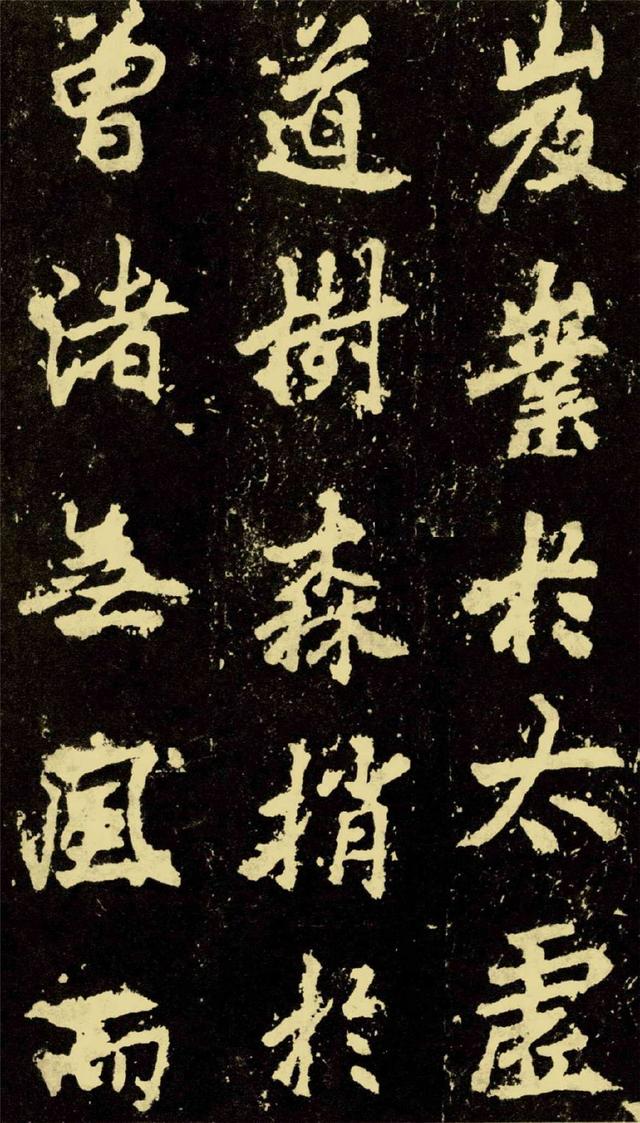 岌嶪於太虛
道樹森梢於
曾渚無風而